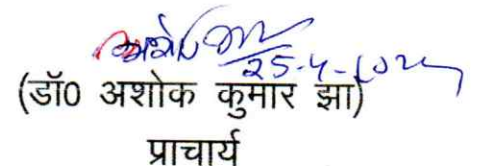 25-4-2024
(डॉ0 अशोक कुमार झा)
प्राचार्य